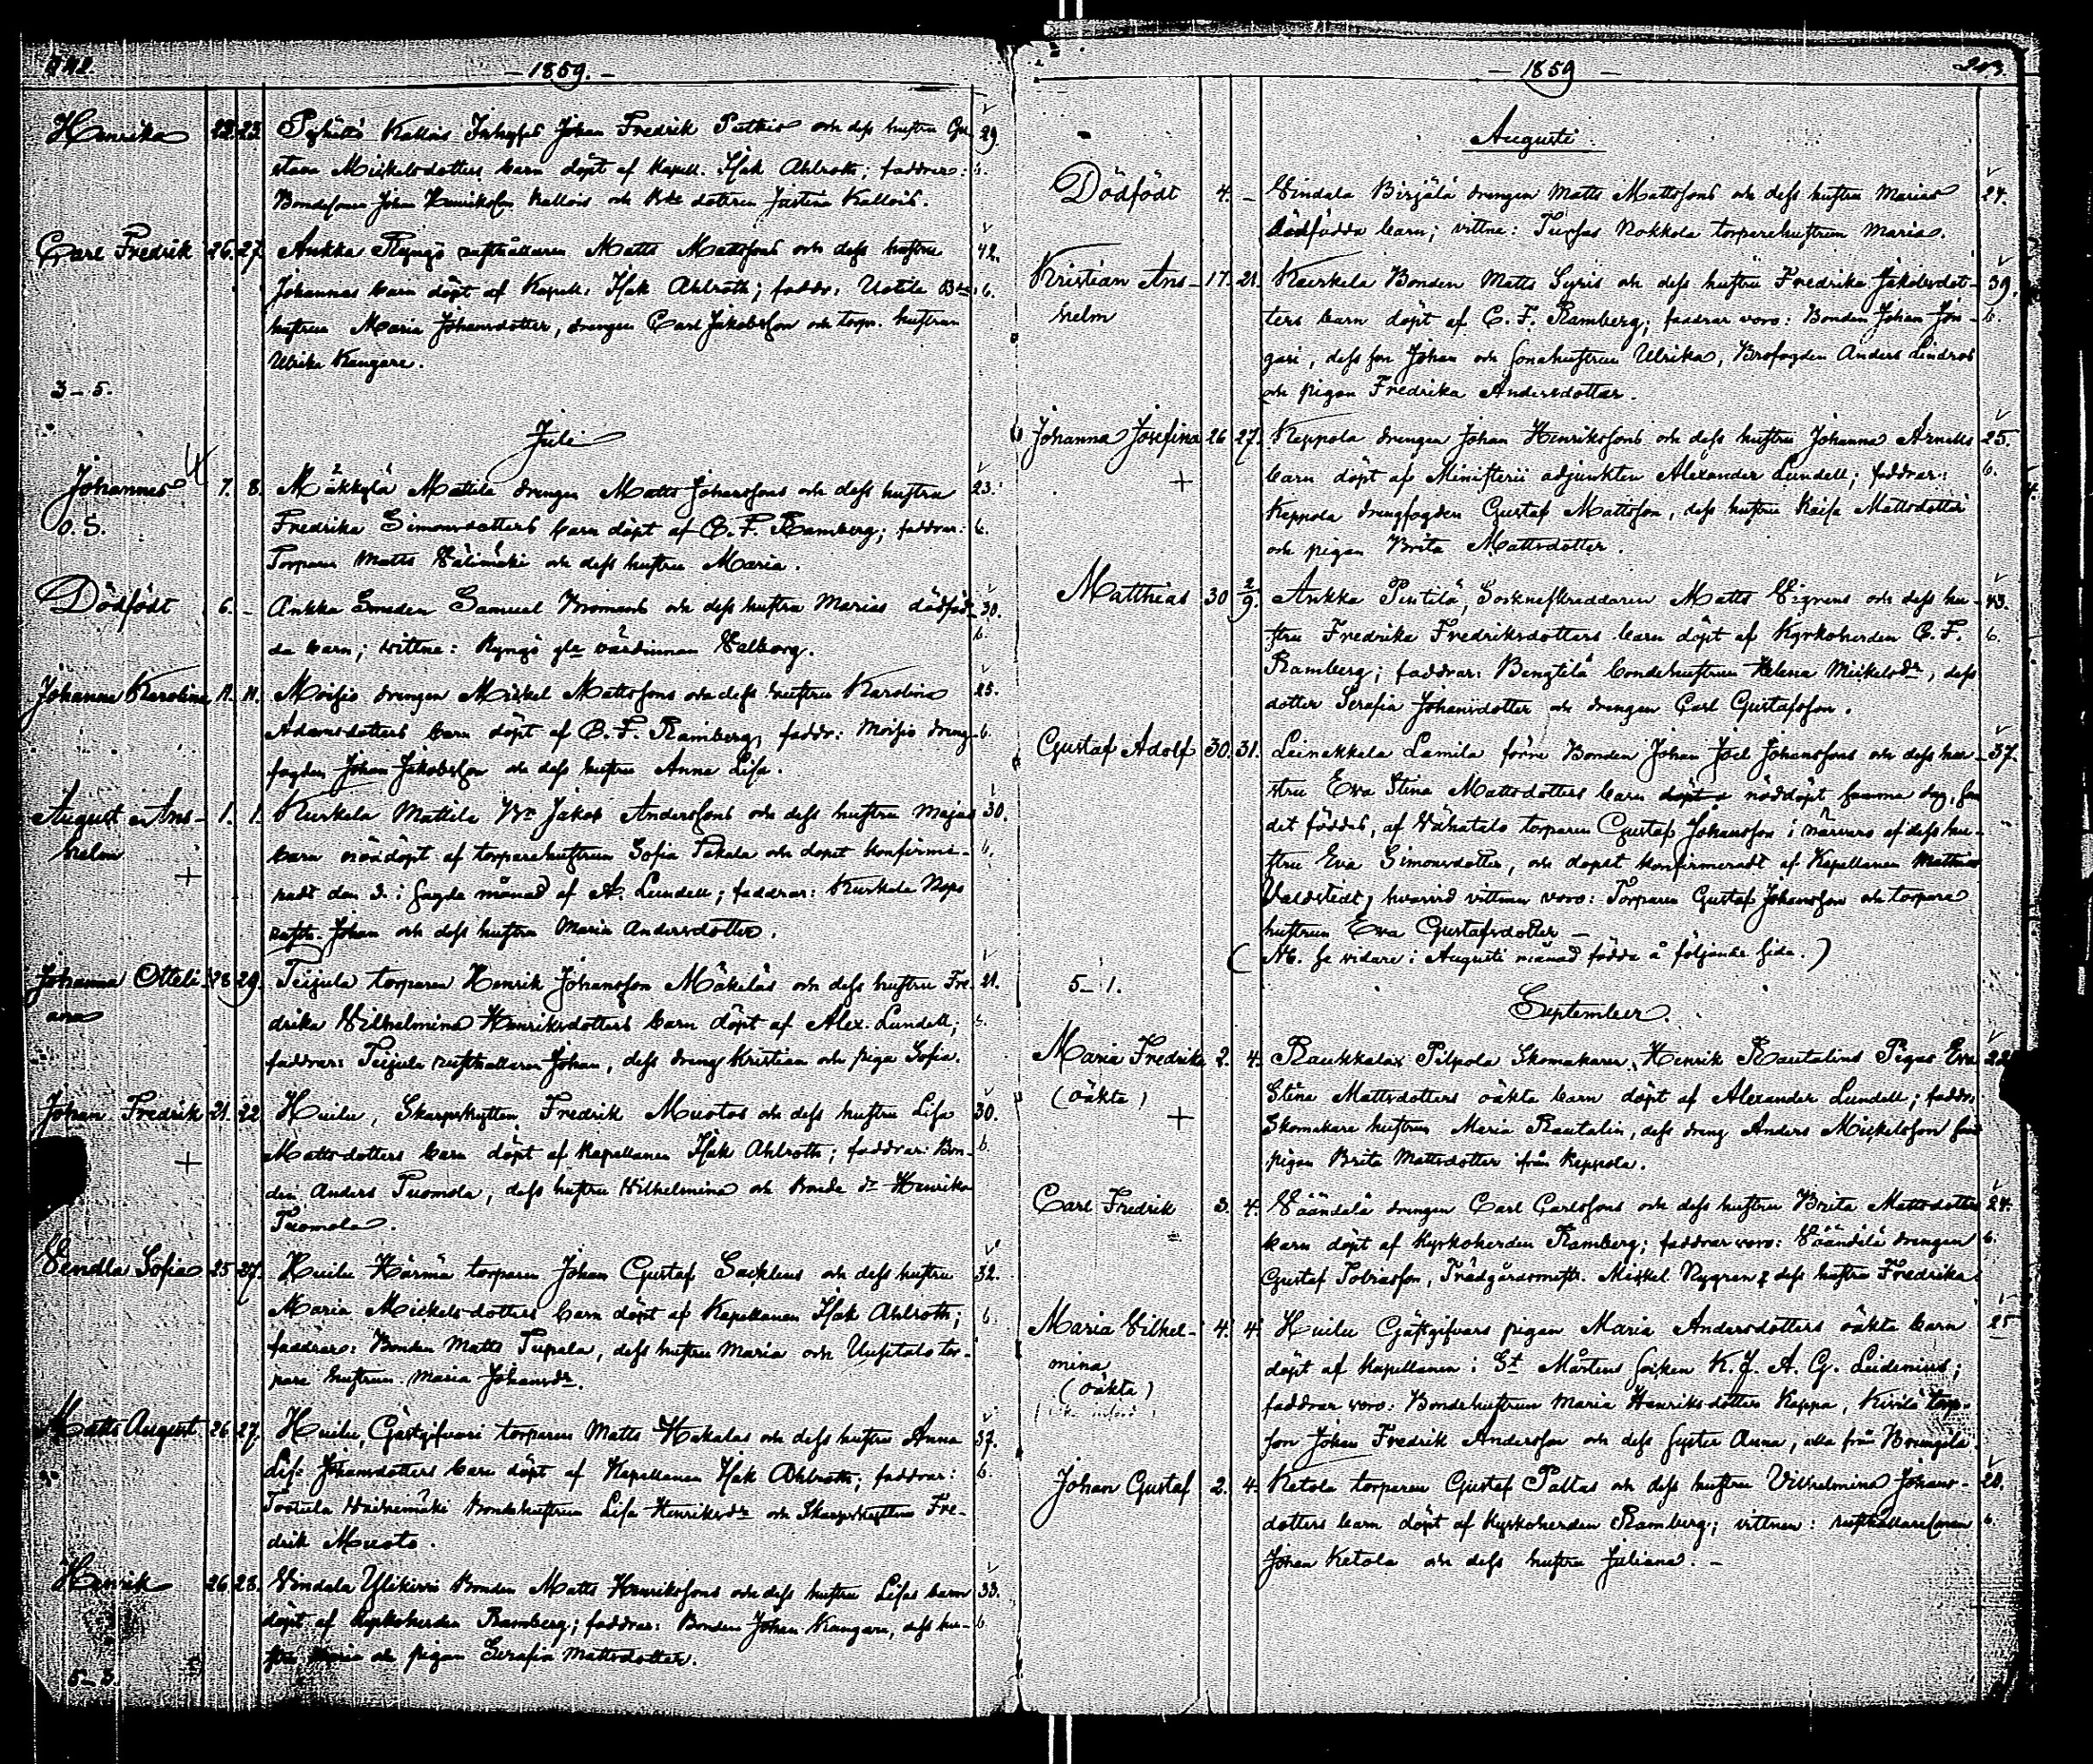 242.
— 1859. —
Henrika 22. 23. Pyhältö Kallois Inhyses Johan Fredrik Puthis och dess hustru Gu- 29.
stava Mickelsdotters barn döpt af Kapell. Isak Ahlroth; faddrar:
Bondesonen Johan Henriksson Kallois och Bde dottren Justina Kallois.
Carl Fredrik 26. 27. Ankka Ryngö rusthållaren Matts Mattssons och dess hustru 42.
Johannas barn döpt af Kapell. Isak Ahlroth; faddr. Uotila Bde b.
hustrun Maria Johansdotter, drengen Carl Jakobsson och torp. hustrun
Ulrika Kangare.
3—5.
Juli
Johannes 7. 8. Mäkkylä Mattila drengen Matts Johanssons och dess hustru 23.
O.S. Fredrika Simonsdotters barn döpt af C. F. Ramberg; faddrar: b.
Torparen Matts Välimäki och dess hustru Maria.
Dödfödt 6. — Ankka Smeden Samuel Kromans och dess hustru Marias dödföd- 30.
da barn; vittne: Ryngö gla värdinnan Valborg. b.
Johanna Karolina 11. 11. Moisio drengen Mickel Mattssons och dess hustru Karolina 25.
Adamsdotters barn döpt af C. F. Ramberg, faddr: Moisio dreng- b.
fogden Johan Jakobsson och dess hustru Anna Lisa.
August Ans- 1. 1. Kurkela Mattila Bn Jakob Anderssons och dess hustru Majas 30.
helm barn nöddöpt af torparehustrun Sofia Pakala och dopet konfirme- b.
+ radt den 3. i sagde månad af A. Lundell; faddrar: Kurkela
rusth. Johan och dess hustru Maria Andersdotter.
Johanna Otteli- 28. 29. Teijula torparen Henrik Johansson Mäkeläs och dess hustru Fre- 21.
ana drika Vilhelmina Henriksdotters barn döpt af Alex. Lundell;
faddrar: Teijula rusthållaren Johan, dess dreng Kristian och piga Sofia.
Johan Fredrik 21. 22 Huilu, Skarpskytten Fredrik Muotos och dess hustru Lisa 30.
+ Mattsdotters barn döpt af Kapellanen Isak Ahlroth; faddrar: Bon- b.
den Anders Tuomola, dess hustru Vilhelmina och Bonde dr Henrika
Tuomola.
Vendla Sofia 25. 27. Huilu Härmä torparen Johan Gustaf Sacklens och dess hustru 32.
Maria Mickelsdotters barn döpt af Kapellanen Isak Ahlroth; b.
faddrar: Bonden Matts Tupala, dess hustru Maria och Uusitalo tor-
pare hustrun Maria Johansdr.
Matts August 26. 27. Huilu, Gästgifveri torparen Matts Hakalas och dess hustru Anna 37.
Lisa Johansdotters barn döpt af Kapellanen Isak Ahlroth; faddrar: b.
Bondehustrun Lisa Henriksdr och Skarpskytten Fre-
drik Muoto.
Henrik 26. 28. Vindala Ylikirri Bonden Matts Henrikssons och dess hustru Lisas barn 33.
döpt af Kyrkoherden Ramberg; faddrar: Bonden Johan Kangare, dess hu- b
stru Maria och pigan Serafia Mattsdotter.
5—3.
— 1859 —
243.
Augusti
Dödfödt 4. — Vindala Birjälä drengen Matts Mattssons och dess hustru Marias 24.
dödfödda barn; vittne: Nokkola torparehustrun Maria.
Kristian Ans- 17. 21. Kurkela Bonden Matts Syris och dess hustru Fredrika Jakobsdot- 39.
helm ters barn döpt af C. F. Ramberg; faddrar voro: Bonden Johan Jun- b.
gari, dess son Johan och sonahustrun Ulrika, Brofogden Anders Lindros
och pigan Fredrika Andersdotter.
Johanna Josefina 26 27. Keppola drengen Johan Henrikssons och dess hustru Johanna Arnells 25.
+ barn döpt af Ministerii adjunkten Alexander Lundell; faddrar: b.
Keppola drengfogden Gustaf Mattsson, dess hustru Kaisa Mattsdotter
och pigan Brita Mattsdotter.
Matthias 30 2/9. Ankka Pentilä, Sockneskreddaren Matts Vigrens och dess hu- 43.
stru Fredrika Fredriksdotters barn döpt af Kyrkoherden C. F. b.
Ramberg; faddrar: Bengtilä bondehustrun Helena Mickelsdr, dess
dotter Serafia Johansdotter och drengen Carl Gustafsson.
Gustaf Adolf 30. 31. Leinakkala Lamila förre Bonden Johan Joel Johanssons och dess hu- 37.
stru Eva Stina Mattsdotters barn döpt nöddöpt samma dag, som
det föddes, af Vähätalo torparen Gustaf Johansson i närvaro af dess hu-
stru Eva Simonsdotter, och dopet konfirmeradt af Kapellanen Mathias
Valdstedt, hvarvid vittnen voro: Torparen Gustaf Johansson och torpare
hustrun Eva Gustafsdotter —
(NB. se vidare i Augusti månad födda å följande sida.)
5—1.
September.
Maria Fredrika 2. 4. Raukkala Pilpola Skomakaren Henrik Rautalins Pigas Eva 22
(oäkta) Stina Mattsdotters oäkta barn döpt af Alexander Lundell; faddr:
+ Skomakare hustrun Maria Rautalin, dess dreng Anders Mickelsson samt
pigan Brita Mattsdotter från Keppola.
Carl Fredrik 3. 4. Väändälä drengen Carl Carlssons och dess hustru Brita Mattsdotters 24.
barn döpt af Kyrkoherden Ramberg; faddrar voro: Väändälä drengen b.
Gustaf Tobiasson, Trädgårdsmäst. Mickel Nygren & dess hustru Fredrika.
Maria Vilhel- 4. 4. Huilu Gästgifvars pigan Maria Andersdotters oäkta barn 25
mina döpt af Kapellanen i St Mårtens socken K. J. A. G. Leidenius;
(oäkta) faddrar voro: Bondehustrun Maria Henriksdotter Kappa, Kivilä torp-
son Johan Fredrik Andersson och dess syster Anna, alla från
Johan Gustaf 2. 4. Ketola torparen Gustaf Paltas och dess hustru Vilhelmina Johans- 20.
dotters barn döpt af Kyrkoherden Ramberg; vittnen: rusthållaresonen b.
Johan Ketola och dess hustru Juliana. —